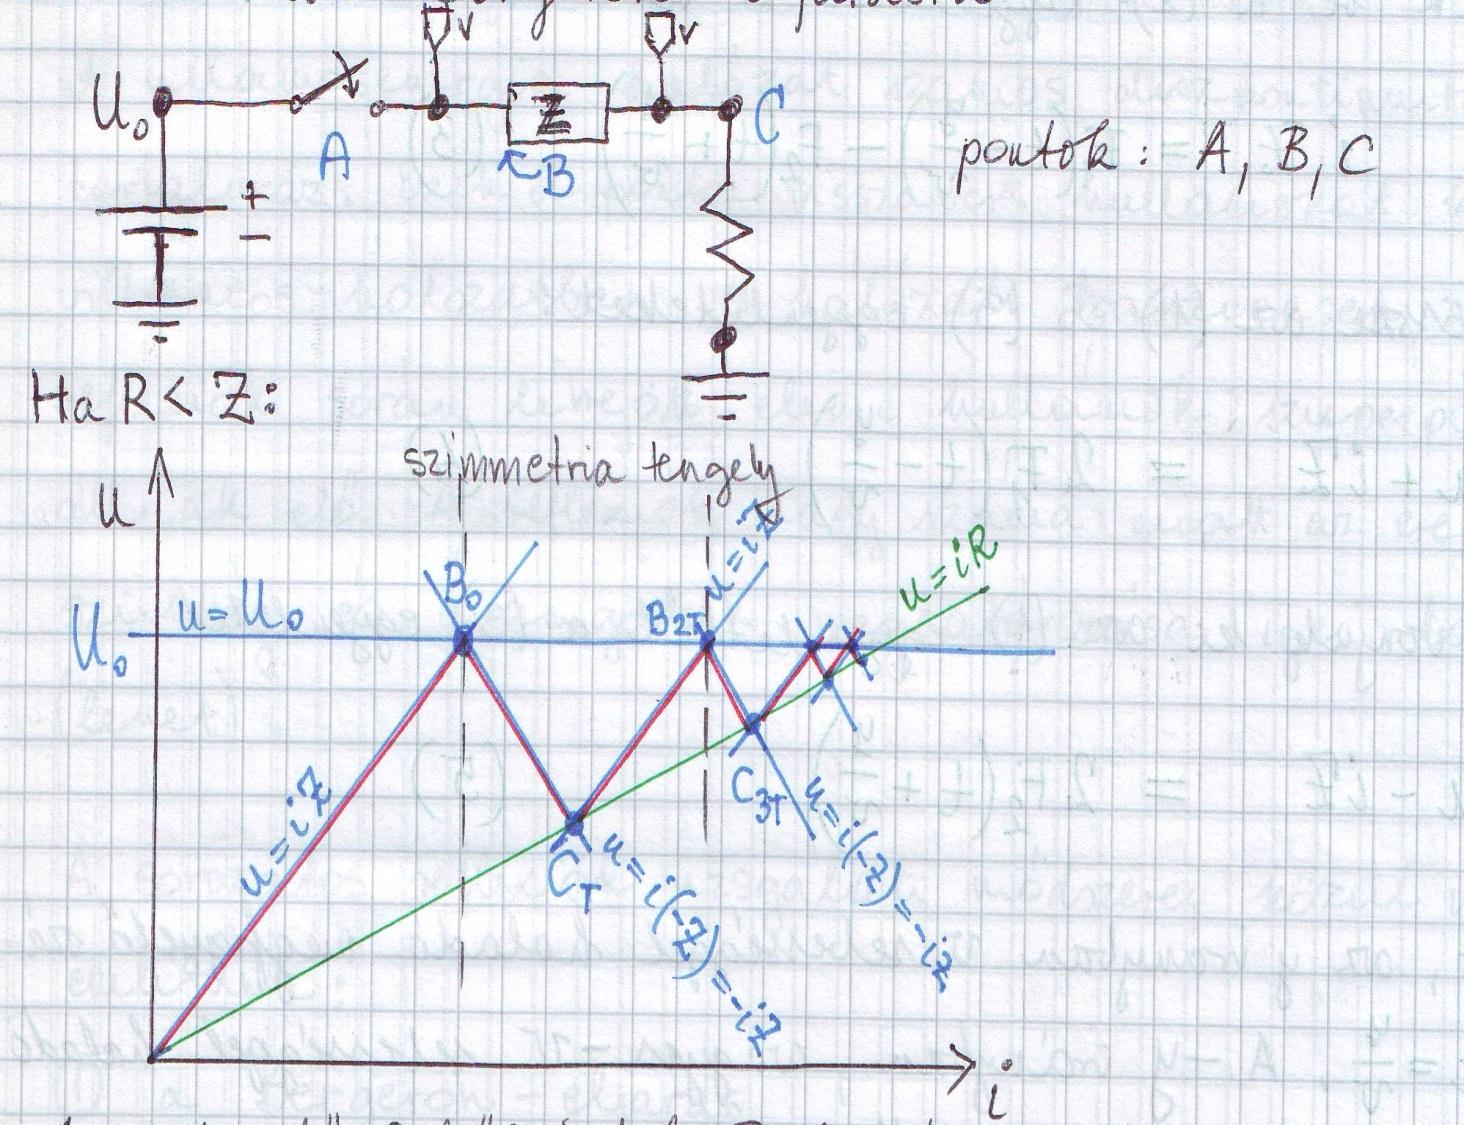 V
V
U₀
A
Z
B
C
pontok: A, B, C
+
−
Ha R < Z:
szimmetria tengely
u
u = iZ
u = iR
B₀
B₂T
u = U₀
U₀
C₃T
u = iZ
C_T
u = i(-Z) = -iZ
u = i(-Z) = -iZ
i